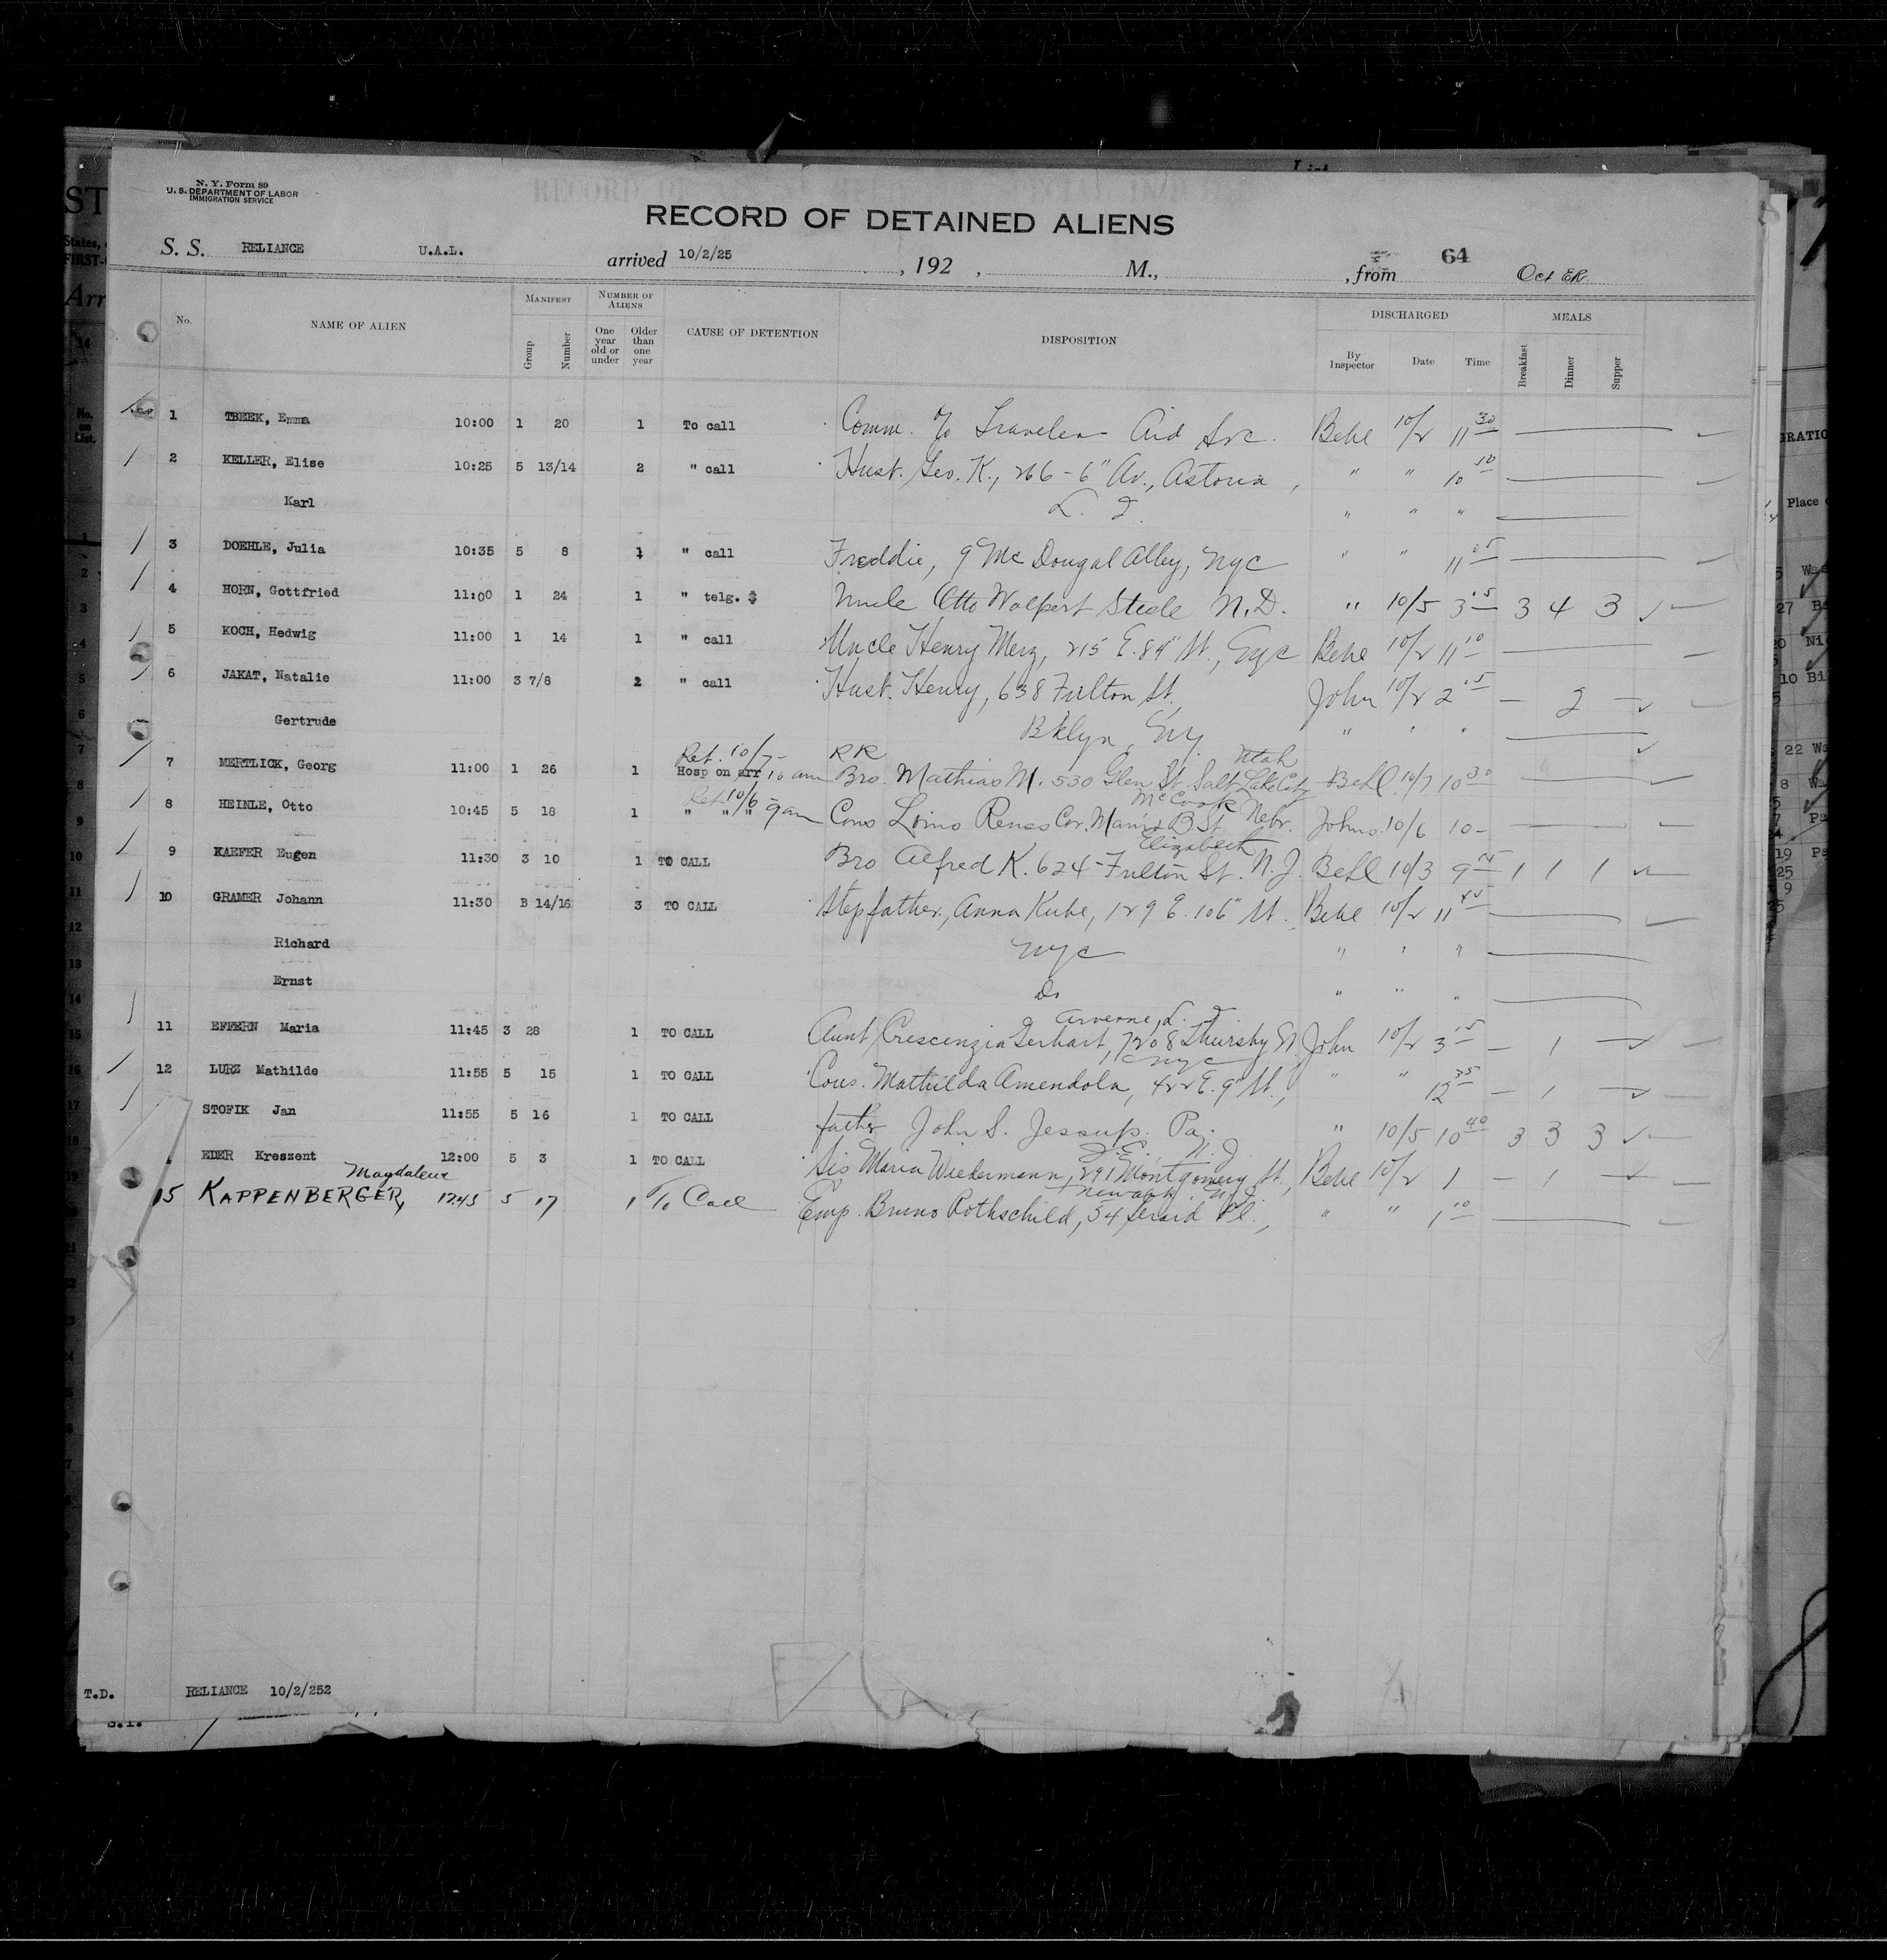 N. Y. Form 89
U. S. DEPARTMENT OF LABOR
IMMIGRATION SERVICE
RECORD OF DETAINED ALIENS
S. S. RELIANCE U.A.L. arrived 10/2/25 , 192 , M., , from 64 Oct ER.
No. NAME OF ALIEN MANIFEST Group Number NUMBER OF ALIENS One year old or under Older than one year CAUSE OF DETENTION DISPOSITION DISCHARGED By Inspector Date Time MEALS Breakfast Dinner Supper
1 TBEEK, Emma 10:00 1 20 1 To call Comm. % Travelers Aid Soc. Behl 10/2 11 30
2 KELLER, Elise 10:25 5 13/14 2 " call Husb. Geo. K., 266 - 6" Av., Astoria, " " 10 50
Karl L. I. " " "
3 DOEHLE, Julia 10:35 5 8 1 " call Freddie, 9 McDougal Alley, NYC " " 11 05
4 HORN, Gottfried 11:00 1 24 1 " telg. $ Uncle Otto Wolpert Steele N.D. " 10/5 3 15 3 4 3
5 KOCH, Hedwig 11:00 1 14 1 " call Uncle Henry Merz, 215 E. 84" St., NYC Behl 10/2 11 10
6 JAKAT, Natalie 11:00 3 7/8 2 " call Husb. Henry, 638 Fulton St., John 10/2 2 15 — 2 —
Gertrude Bklyn, NY. " " "
Ret. 10/7 - RR Utah
7 MERTLICK, Georg 11:00 1 26 1 Hosp on arr 10 am Bro. Mathias M. 530 Glen St Salt Lake City Behl 10/7 10 30
Ret. 10/6 McCook
8 HEINLE, Otto 10:45 5 18 1 " " " 9 am Cous Main & B St. Nebr. Johns. 10/6 10 -
Elizabeth
9 KAEFER Eugen 11:30 3 10 1 TO CALL Bro Alfred K. 624 - Fulton St. N. J. Behl 10/3 9 1 1 1
10 GRAMER Johann 11:30 B 14/16 3 TO CALL Stepfather, Anna Kube, 129 E. 106" St., Behl 10/2 11 45
Richard NYC " " "
Ernst Do " " "
Arverne, L. I.
11 EFFERN Maria 11:45 3 28 1 TO CALL Aunt Crescenzia Gerhart, 7208 Thursby Av. John 10/2 3 15 — 1 —
NYC
12 LURZ Mathilde 11:55 5 15 1 TO CALL Cous. Mathilda Amendola, 422 E. 9" St., " " 12 35 — 1 —
STOFIK Jan 11:55 5 16 1 TO CALL father John S. Jessup. Pa. " 10/5 10 40 3 3 3
J.C., N. J.
EDER Kreszent 12:00 5 3 1 TO CALL Sis Maria Wiedermann, 291 Montgomery St., Behl 10/2 1 — 1 —
Magdalene Newark N.J.
15 KAPPENBERGER, 1245 5 17 1 To Call Emp. Bruno Rothschild, 54 Pl., " " 1 10
T.D. RELIANCE 10/2/252
S.I.